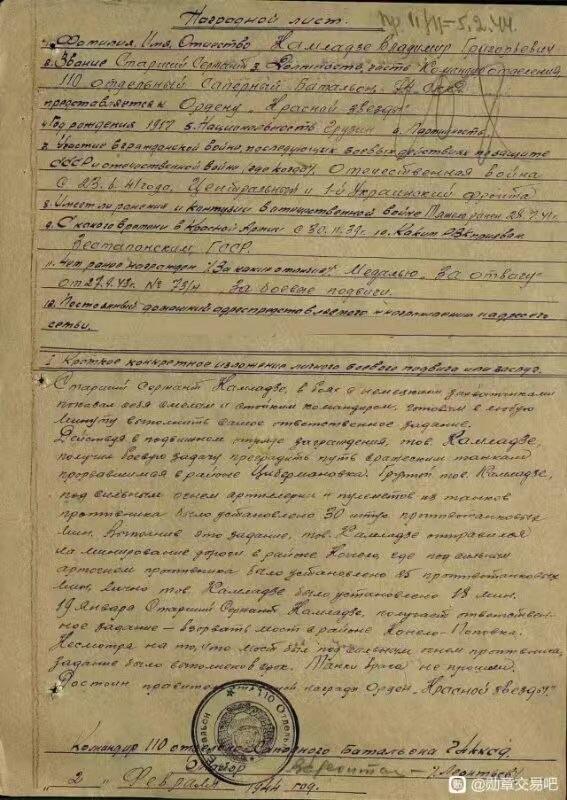 Наградной лист.
пр 11/н=5.2.44.
1. Фамилия, Имя, Отчество Намладзе Владимир Григорьевич
2. Звание Старший Сержант 3. Должность, часть Командир отделения
110 отдельный Саперный Батальон
представляется к Ордену „Красной звезды"
4. Год рождения 1917 5. Национальность Грузин 6. Партийность
7. Участие в гражданской войне, последующих боевых действиях по защите
СССР и отечественной войне (где когда) Отечественная война
с 23.6.41 года, Центральной и 1-й Украинский фронта
8. Имеет ли ранения и контузии в отечественной войне Тяжело ранен 28.7.41 г.
9. С какого времени в Красной Армии с 30.11.39 г. 10. Каким РВК призван
ГССР.
11. Чем ранее награжден (за какие отличия) Медалью „За отвагу"
№ 75/н За боевые подвиги.
12. Постоянный домашний адрес представляемого к награждению и адрес его
семьи.
I. Краткое конкретное изложение личного боевого подвига или заслуг.
Старший Сержант Намладзе, в боях с немецкими захватчиками
показал себя смелым и стойким командиром, готовым в любую
минуту выполнить самое ответственное задание.
Действуя в подвижном отряде заграждения, тов. Намладзе,
получил боевую задачу преградить путь вражеским танкам
прорвавшимся в районе Цибермановка. Группой тов. Намладзе,
под сильным огнем артиллерии и пулеметов из танков
противника было установлено 30 штук противотанковых
мин. Выполнив это задание, тов. Намладзе отправился
на минирование дороги в районе Конела, где под сильным
артогнем противника было установлено 25 противотанковых
мин, лично тов. Намладзе было установлено 18 мин.
19 Января Старший Сержант Намладзе, получает ответствен-
ное задание – взорвать мост в районе Конело-Поповка.
Несмотря на то, что мост был под сильным огнем противника,
задание было выполнено в срок. Танки врага не прошли.
Достоин правительственной награды Орден „Красной звезды"
Командир 110 отдельного Саперного Батальона
„2" Февраля 1944 год.
@勋章交易吧